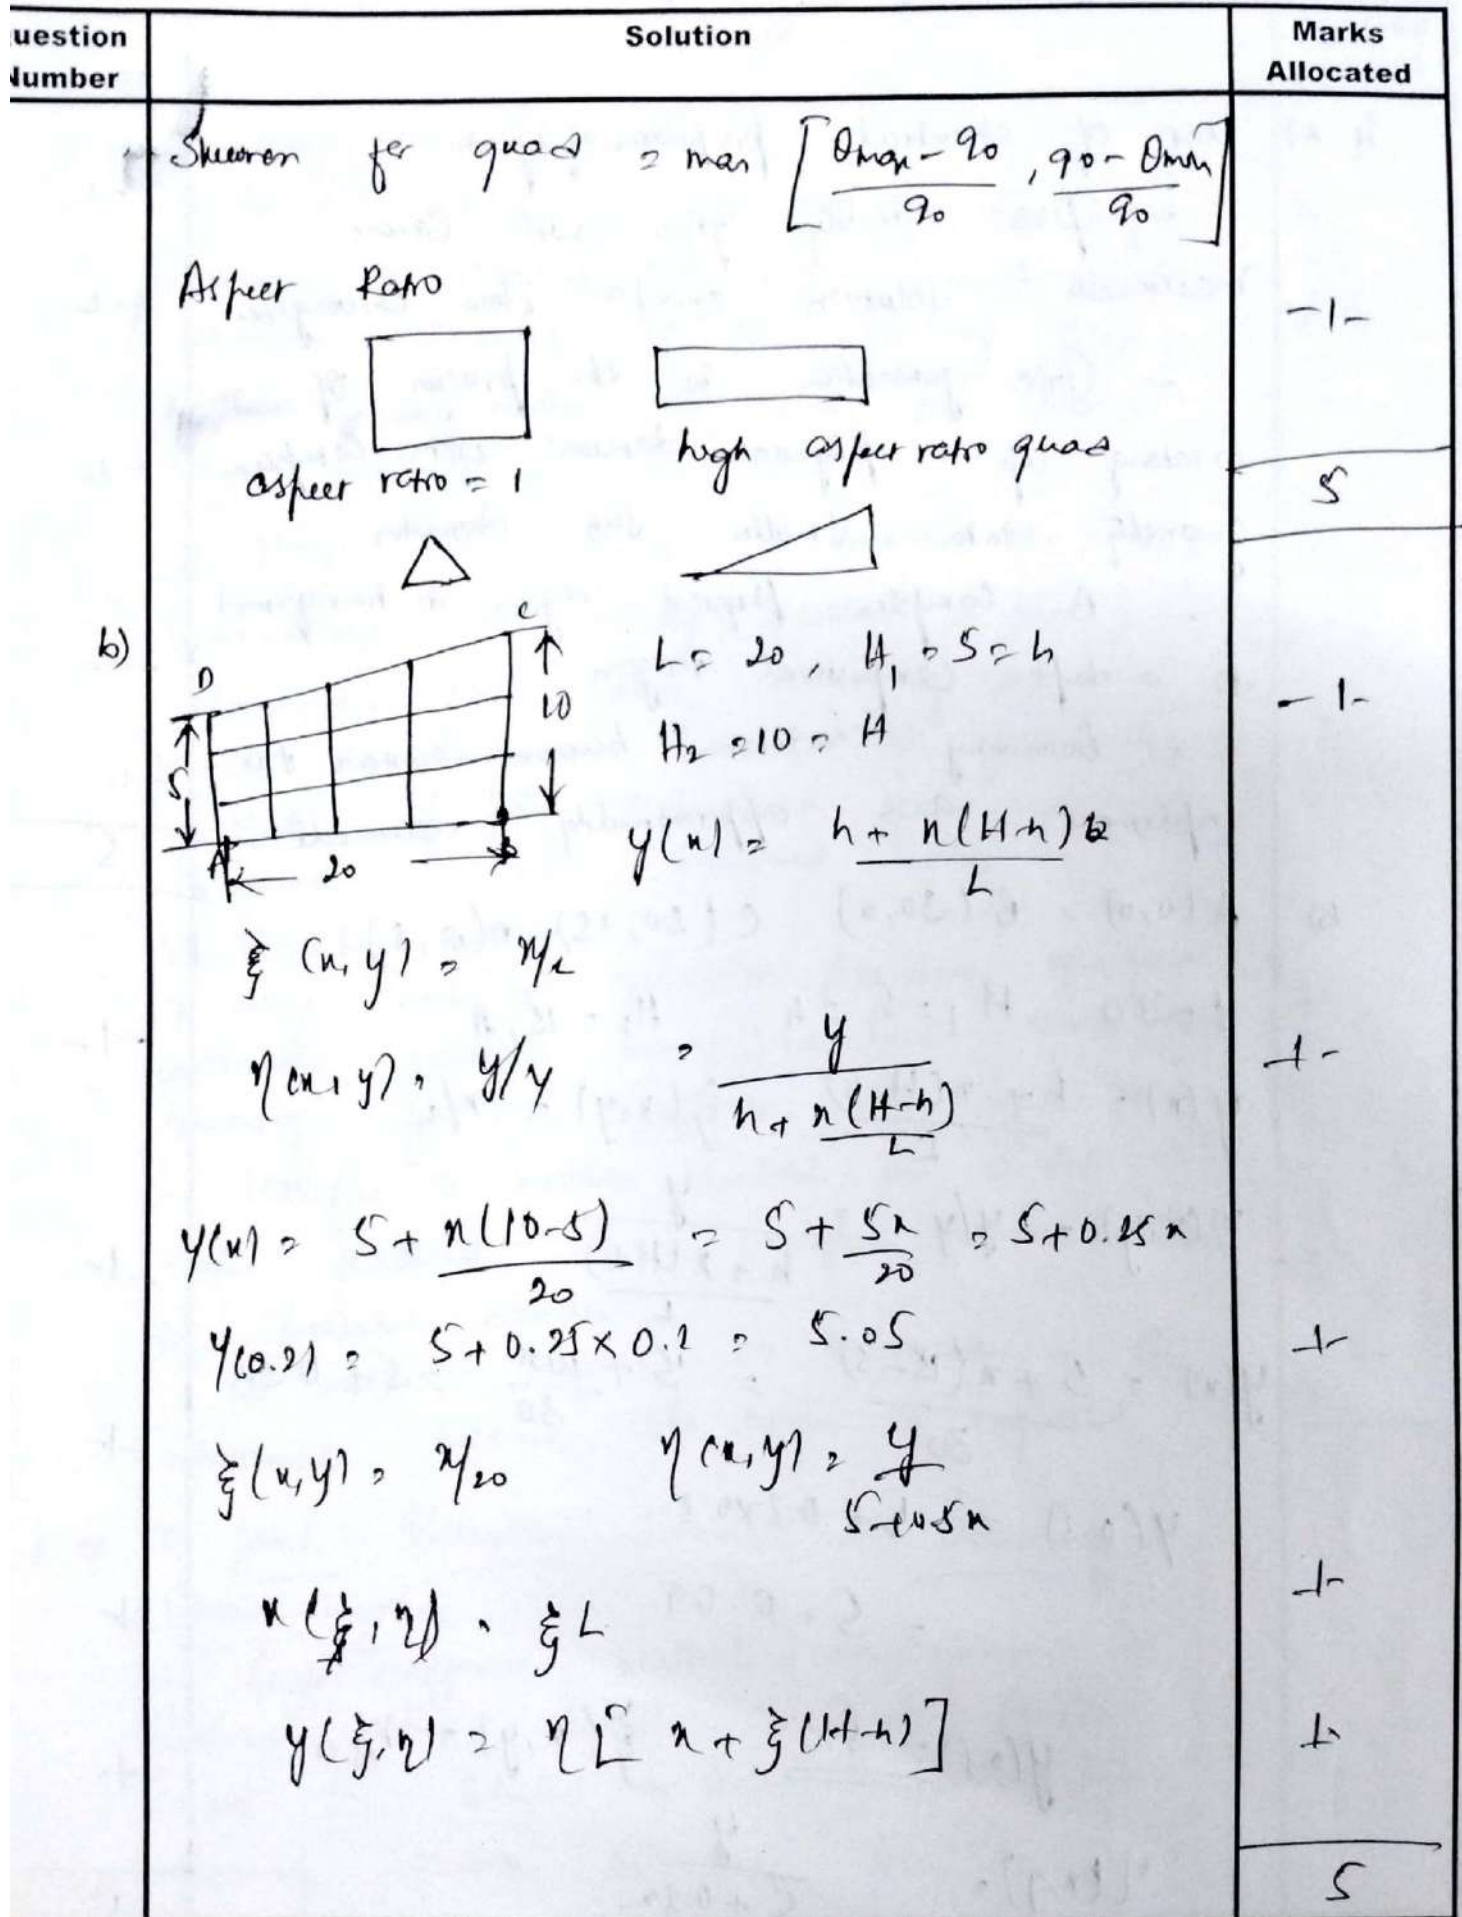 uestion Number
Solution
Marks Allocated
for quad = max [ θmax - 90 / 90 , 90 - θmin / 90 ]
Aspect Ratio
-1-
aspect ratio = 1
high aspect ratio quad
5
b)
D
C
5
10
A
20
L = 20, H₁ = 5 = h
-1-
H₂ = 10 = H
y(x) = h + x(H-h) / L
ξ(x,y) = x/L
η(x,y) = y/y = y / h + x(H-h)/L
-1-
y(x) = 5 + x(10-5) / 20 = 5 + 5x / 20 = 5 + 0.25x
y(0.2) = 5 + 0.25 × 0.2 = 5.05
-1-
ξ(x,y) = x/20
η(x,y) = y /
x(ξ,η) = ξL
-1-
y(ξ,η) = η[ x + ξ(H-h) ]
-1-
5